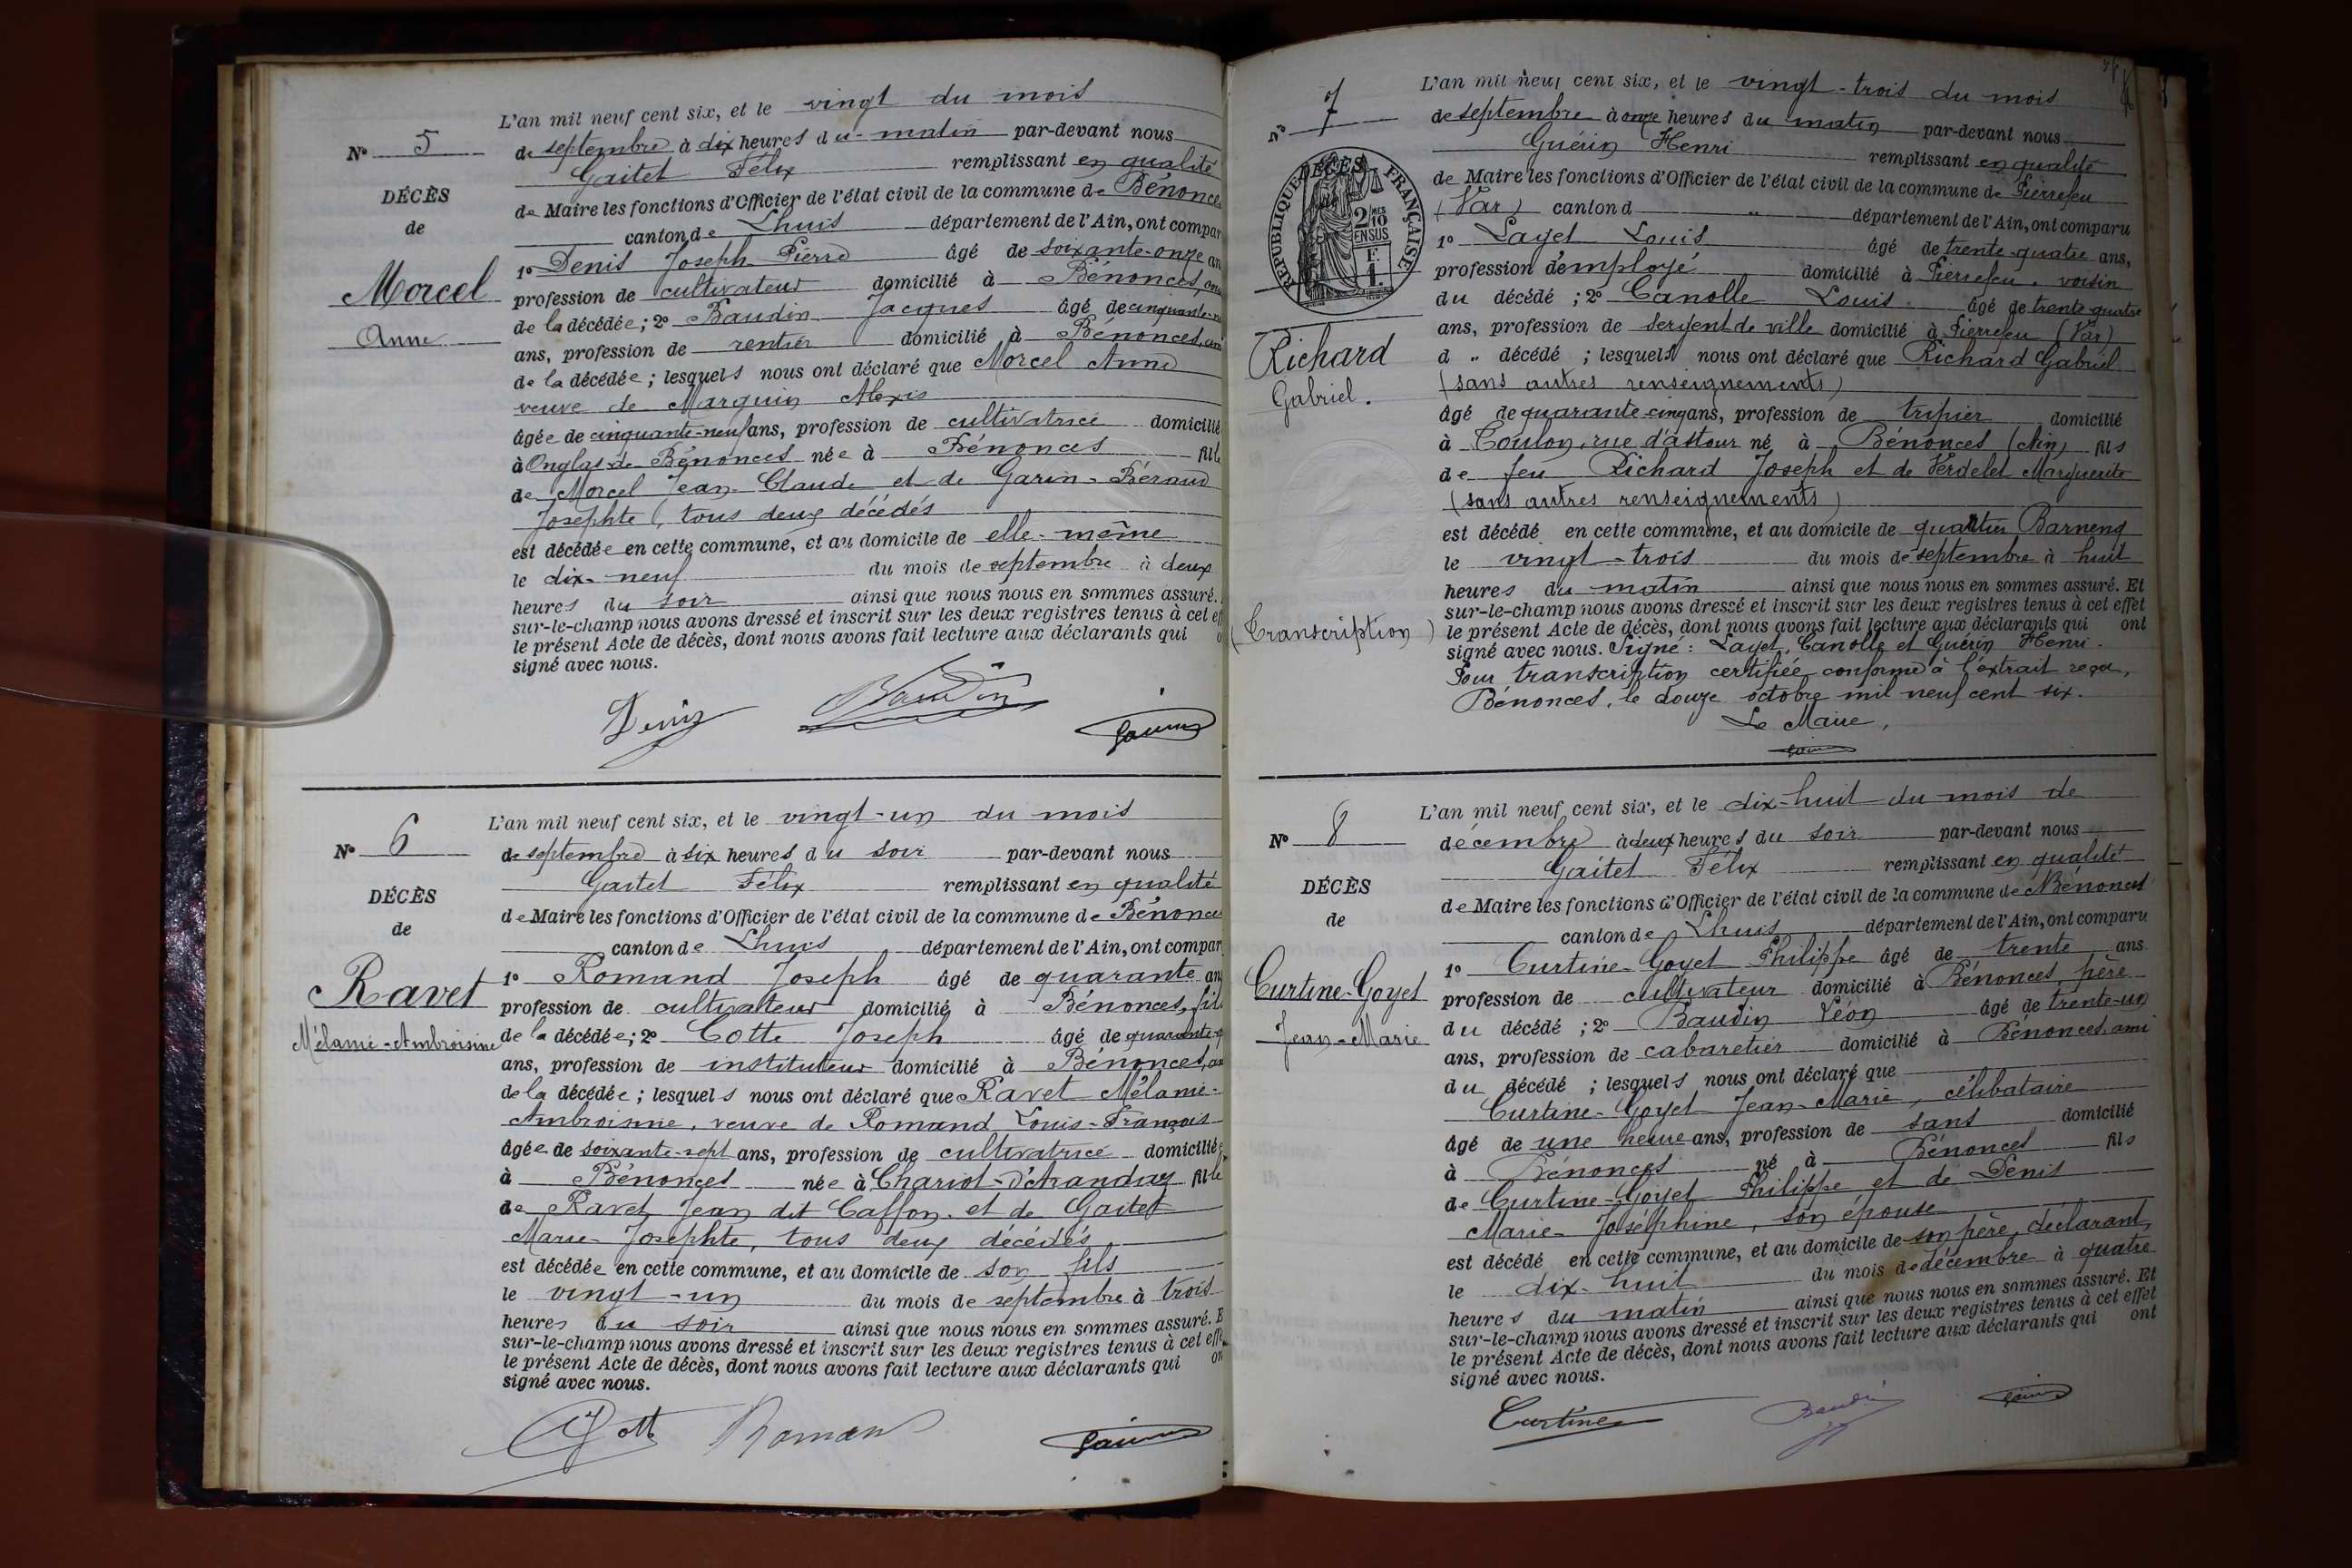 N° 5
DÉCÈS
de
Morcel
Anne
L'an mil neuf cent six, et le vingt du mois
de septembre à dix heures du matin par-devant nous
Gaitet Félix remplissant en qualité
de Maire les fonctions d'Officier de l'état civil de la commune de Bénonce
canton de Lhuis département de l'Ain, ont compar
1° Denis Joseph Pierre âgé de soixante-onze an
profession de cultivateur domicilié à Bénonces,
de la décédée; 2° Baudin Jacques âgé de cinquante-
ans, profession de rentier domicilié à Bénonces, ami
de la décédée; lesquels nous ont déclaré que Morcel Anne
veuve de Marquin Alexis
âgée de cinquante-neuf ans, profession de cultivatrice domicilié
à Onglas de Bénonces née à Bénonces fille
de Morcel Jean-Claude et de Garin-Béraud
Josephte, tous deux décédés
est décédée en cette commune, et au domicile de elle-même
le dix-neuf du mois de septembre à deux
heures du soir ainsi que nous nous en sommes assuré.
sur-le-champ nous avons dressé et inscrit sur les deux registres tenus à cet ef
le présent Acte de décès, dont nous avons fait lecture aux déclarants qui o
signé avec nous.
Denis Baudin
N° 6
DÉCÈS
de
Ravet
Mélanie-Ambroisine
L'an mil neuf cent six, et le vingt-un du mois
de septembre à six heures du soir par-devant nous
Gaitet Félix remplissant en qualité
de Maire les fonctions d'Officier de l'état civil de la commune de Bénonces
canton de Lhuis département de l'Ain, ont compar
1° Romand Joseph âgé de quarante an
profession de cultivateur domicilié à Bénonces, fil
de la décédée; 2° Cotte Joseph âgé de quarante-
ans, profession de instituteur domicilié à Bénonces, am
de la décédée; lesquels nous ont déclaré que Ravet Mélanie-
Ambroisine, veuve de Romand Louis-François
âgée de soixante-sept ans, profession de cultivatrice domiciliée
à Bénonces née à Chariot-d'Arandas fille
de Ravet Jean dit Caffon et de Gaitet
Marie-Josephte, tous deux décédés
est décédée en cette commune, et au domicile de son fils
le vingt-un du mois de septembre à trois
heures du soir ainsi que nous nous en sommes assuré. E
sur-le-champ nous avons dressé et inscrit sur les deux registres tenus à cet effe
le présent Acte de décès, dont nous avons fait lecture aux déclarants qui on
signé avec nous.
Cotte Roman
N° 7
RÉPUBLIQUE FRANÇAISE
DÉCÈS
2/10 MES
EN SUS
F.
1.
Richard
Gabriel.
(Transcription)
L'an mil neuf cent six, et le vingt-trois du mois
de septembre à onze heures du matin par-devant nous
Guérin Henri remplissant en qualité
de Maire les fonctions d'Officier de l'état civil de la commune de Pierrefeu
(Var) canton d " département de l'Ain, ont comparu
1° Layet Louis âgé de trente-quatre ans,
profession d'employé domicilié à Pierrefeu, voisin
du décédé; 2° Canolle Louis âgé de trente-quatre
ans, profession de sergent de ville domicilié à Pierrefeu (Var)
d " décédé; lesquels nous ont déclaré que Richard Gabriel
(sans autres renseignements)
âgé de quarante-cinq ans, profession de tripier domicilié
à Toulon, rue d'astour né à Bénonces (Ain) fils
de feu Richard Joseph et de Verdelet Marguerite
(sans autres renseignements)
est décédé en cette commune, et au domicile de quartier Barneng
le vingt-trois du mois de septembre à huit
heures du matin ainsi que nous nous en sommes assuré. Et
sur-le-champ nous avons dressé et inscrit sur les deux registres tenus à cet effet
le présent Acte de décès, dont nous avons fait lecture aux déclarants qui ont
signé avec nous. Signé: Layet, Canolle et Guérin Henri.
Pour transcription certifiée conforme à l'extrait reçu,
Bénonces, le douze octobre mil neuf cent six.
Le Maire,
N° 8
DÉCÈS
de
Curtine-Goyet
Jean-Marie
L'an mil neuf cent six, et le dix-huit du mois de
décembre à deux heures du soir par-devant nous
Gaitet Félix remplissant en qualité
de Maire les fonctions d'Officier de l'état civil de la commune de Bénonces
canton de Lhuis département de l'Ain, ont comparu
1° Curtine-Goyet Philippe âgé de trente ans
profession de cultivateur domicilié à Bénonces, père
du décédé; 2° Baudin Léon âgé de trente-un
ans, profession de cabaretier domicilié à Bénonces, ami
du décédé; lesquels nous ont déclaré que
Curtine-Goyet Jean-Marie, célibataire
âgé de une heure ans, profession de sans domicilié
à Bénonces né à Bénonces fils
de Curtine-Goyet Philippe et de Denis
Marie-Joséphine, son épouse
est décédé en cette commune, et au domicile de son père, déclarant,
le dix-huit du mois de décembre à quatre
heures du matin ainsi que nous nous en sommes assuré. Et
sur-le-champ nous avons dressé et inscrit sur les deux registres tenus à cet effet
le présent Acte de décès, dont nous avons fait lecture aux déclarants qui ont
signé avec nous.
Curtine Baudin